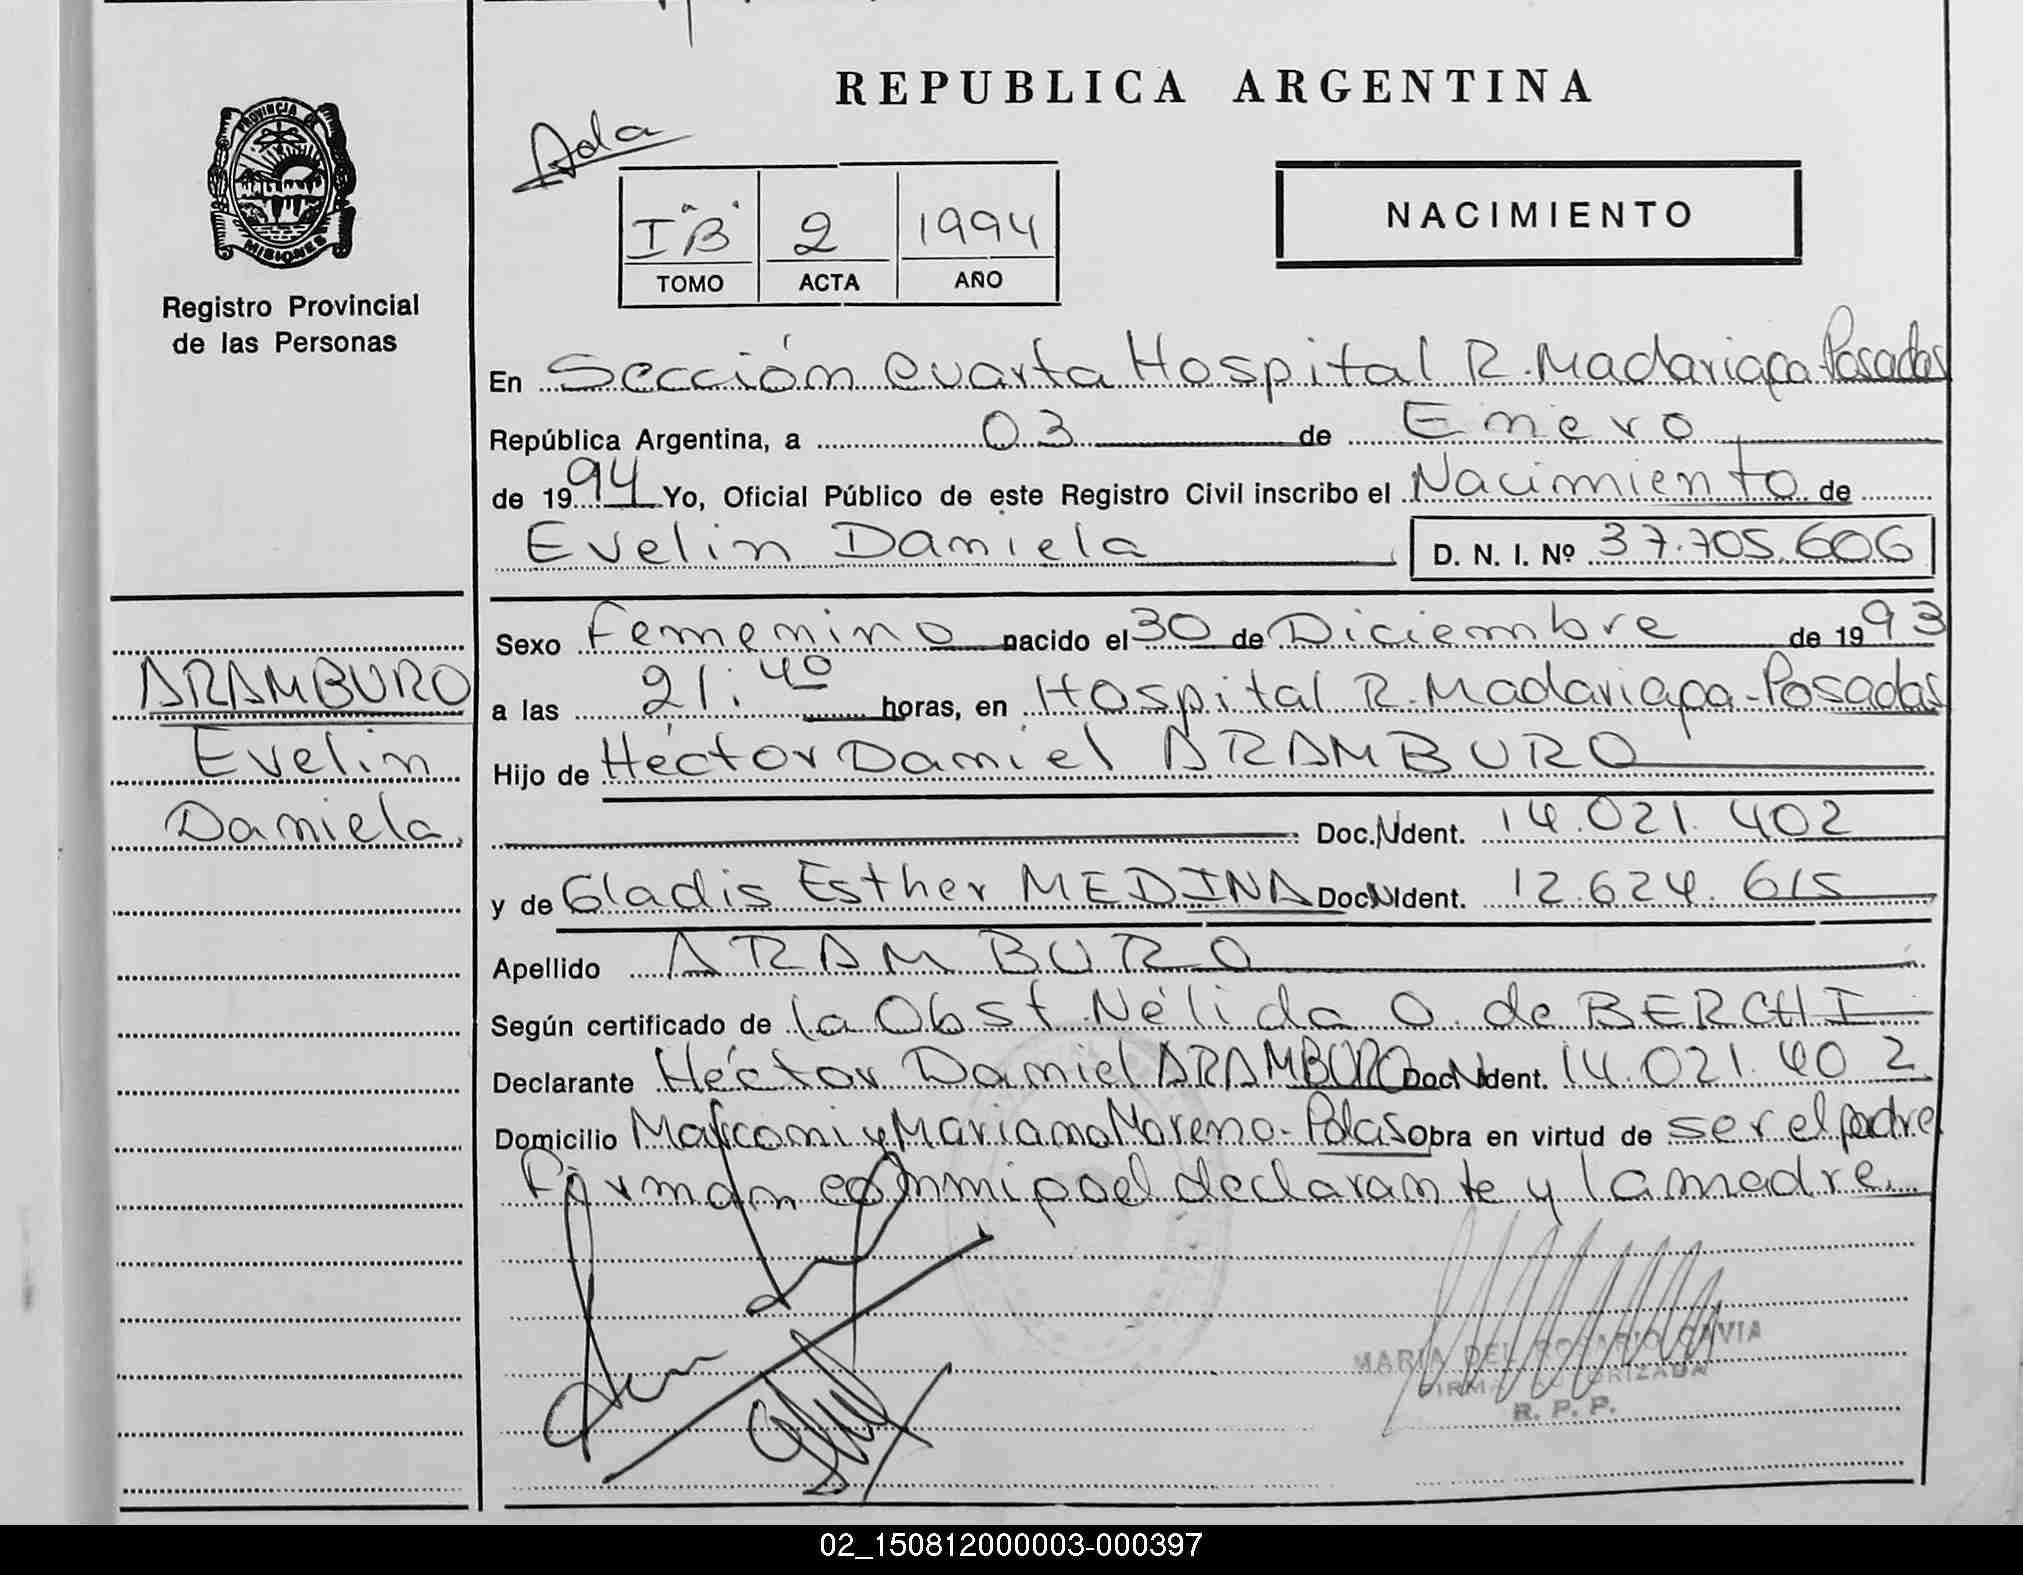 REPUBLICA ARGENTINA
PROVINCIA DE
MISIONES
Registro Provincial
de las Personas
Ada
I "B" 2 1994
TOMO ACTA AÑO
NACIMIENTO
En Sección Cuarta Hospital R. Madariaga Posadas
República Argentina, a 03 de Enero
de 1994 Yo, Oficial Público de este Registro Civil inscribo el Nacimiento de
Evelin Daniela D. N. I. Nº 37.705.606
Sexo Femenino nacido el 30 de Diciembre de 1993
a las 21:40 horas, en Hospital R. Madariaga - Posadas
Hijo de Héctor Daniel ARAMBURO
Doc. Ident. 14.021.402
y de Gladis Esther MEDINA Doc. Ident. 12.624.615
Apellido ARAMBURO
Según certificado de la Obst. Nélida O. de BERCHI
Declarante Héctor Daniel ARAMBURO Doc. Ident. 14.021.402
Domicilio Marconi y Mariano Moreno - Pdas obra en virtud de ser el padre
Firman conmigo el declarante y la madre.
ARAMBURO
Evelin
Daniela.
MARIA DEL ROSARIO GAVIA
FIRMA AUTORIZADA
R. P. P.
02_150812000003-000397